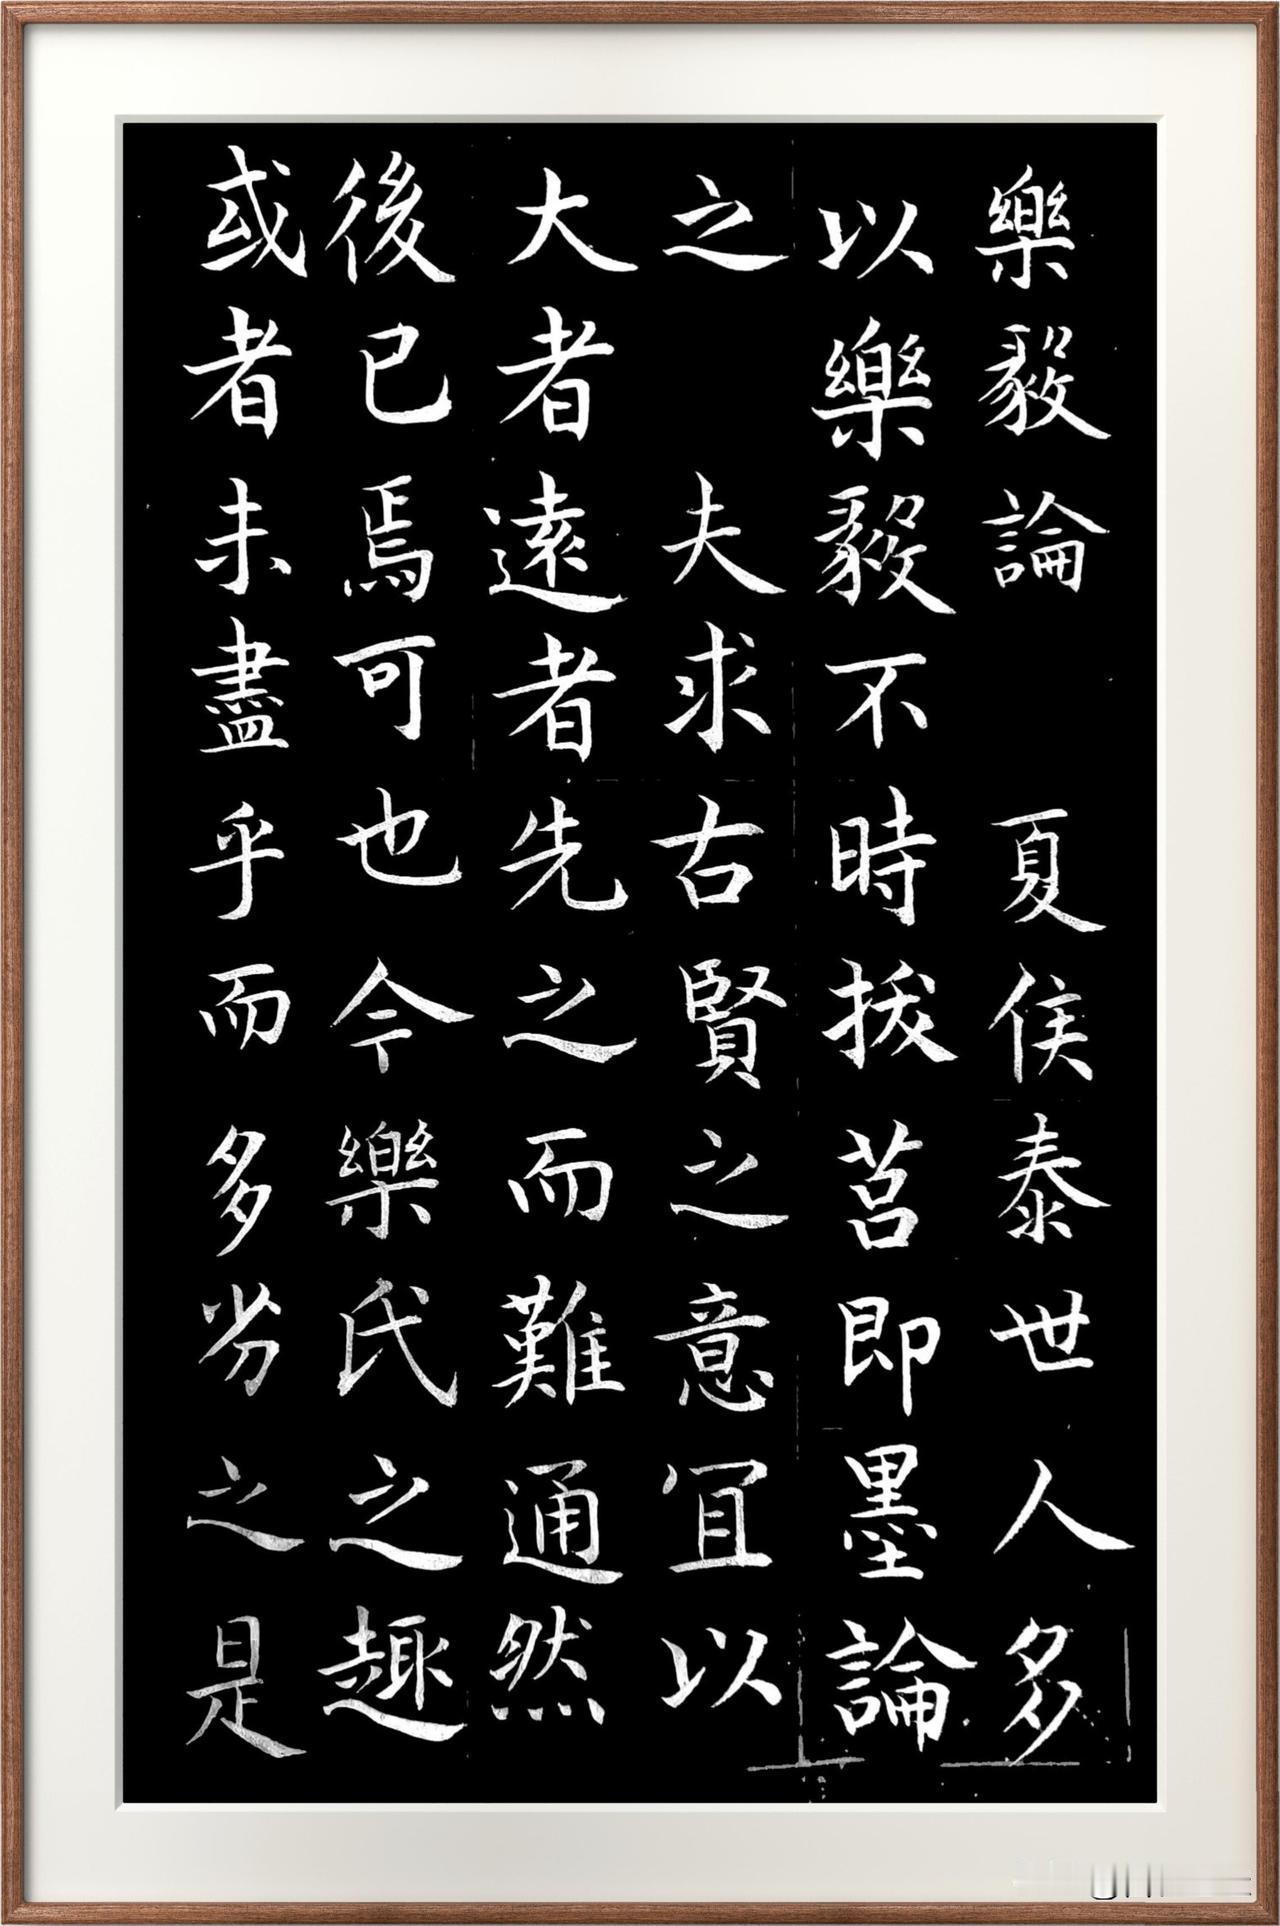 樂毅論 夏侯泰世人多
以樂毅不時拔莒即墨論
之 夫求古賢之意宜以
大者遠者先之而難通然
後已焉可也今樂氏之趣
或者未盡乎而多劣之是